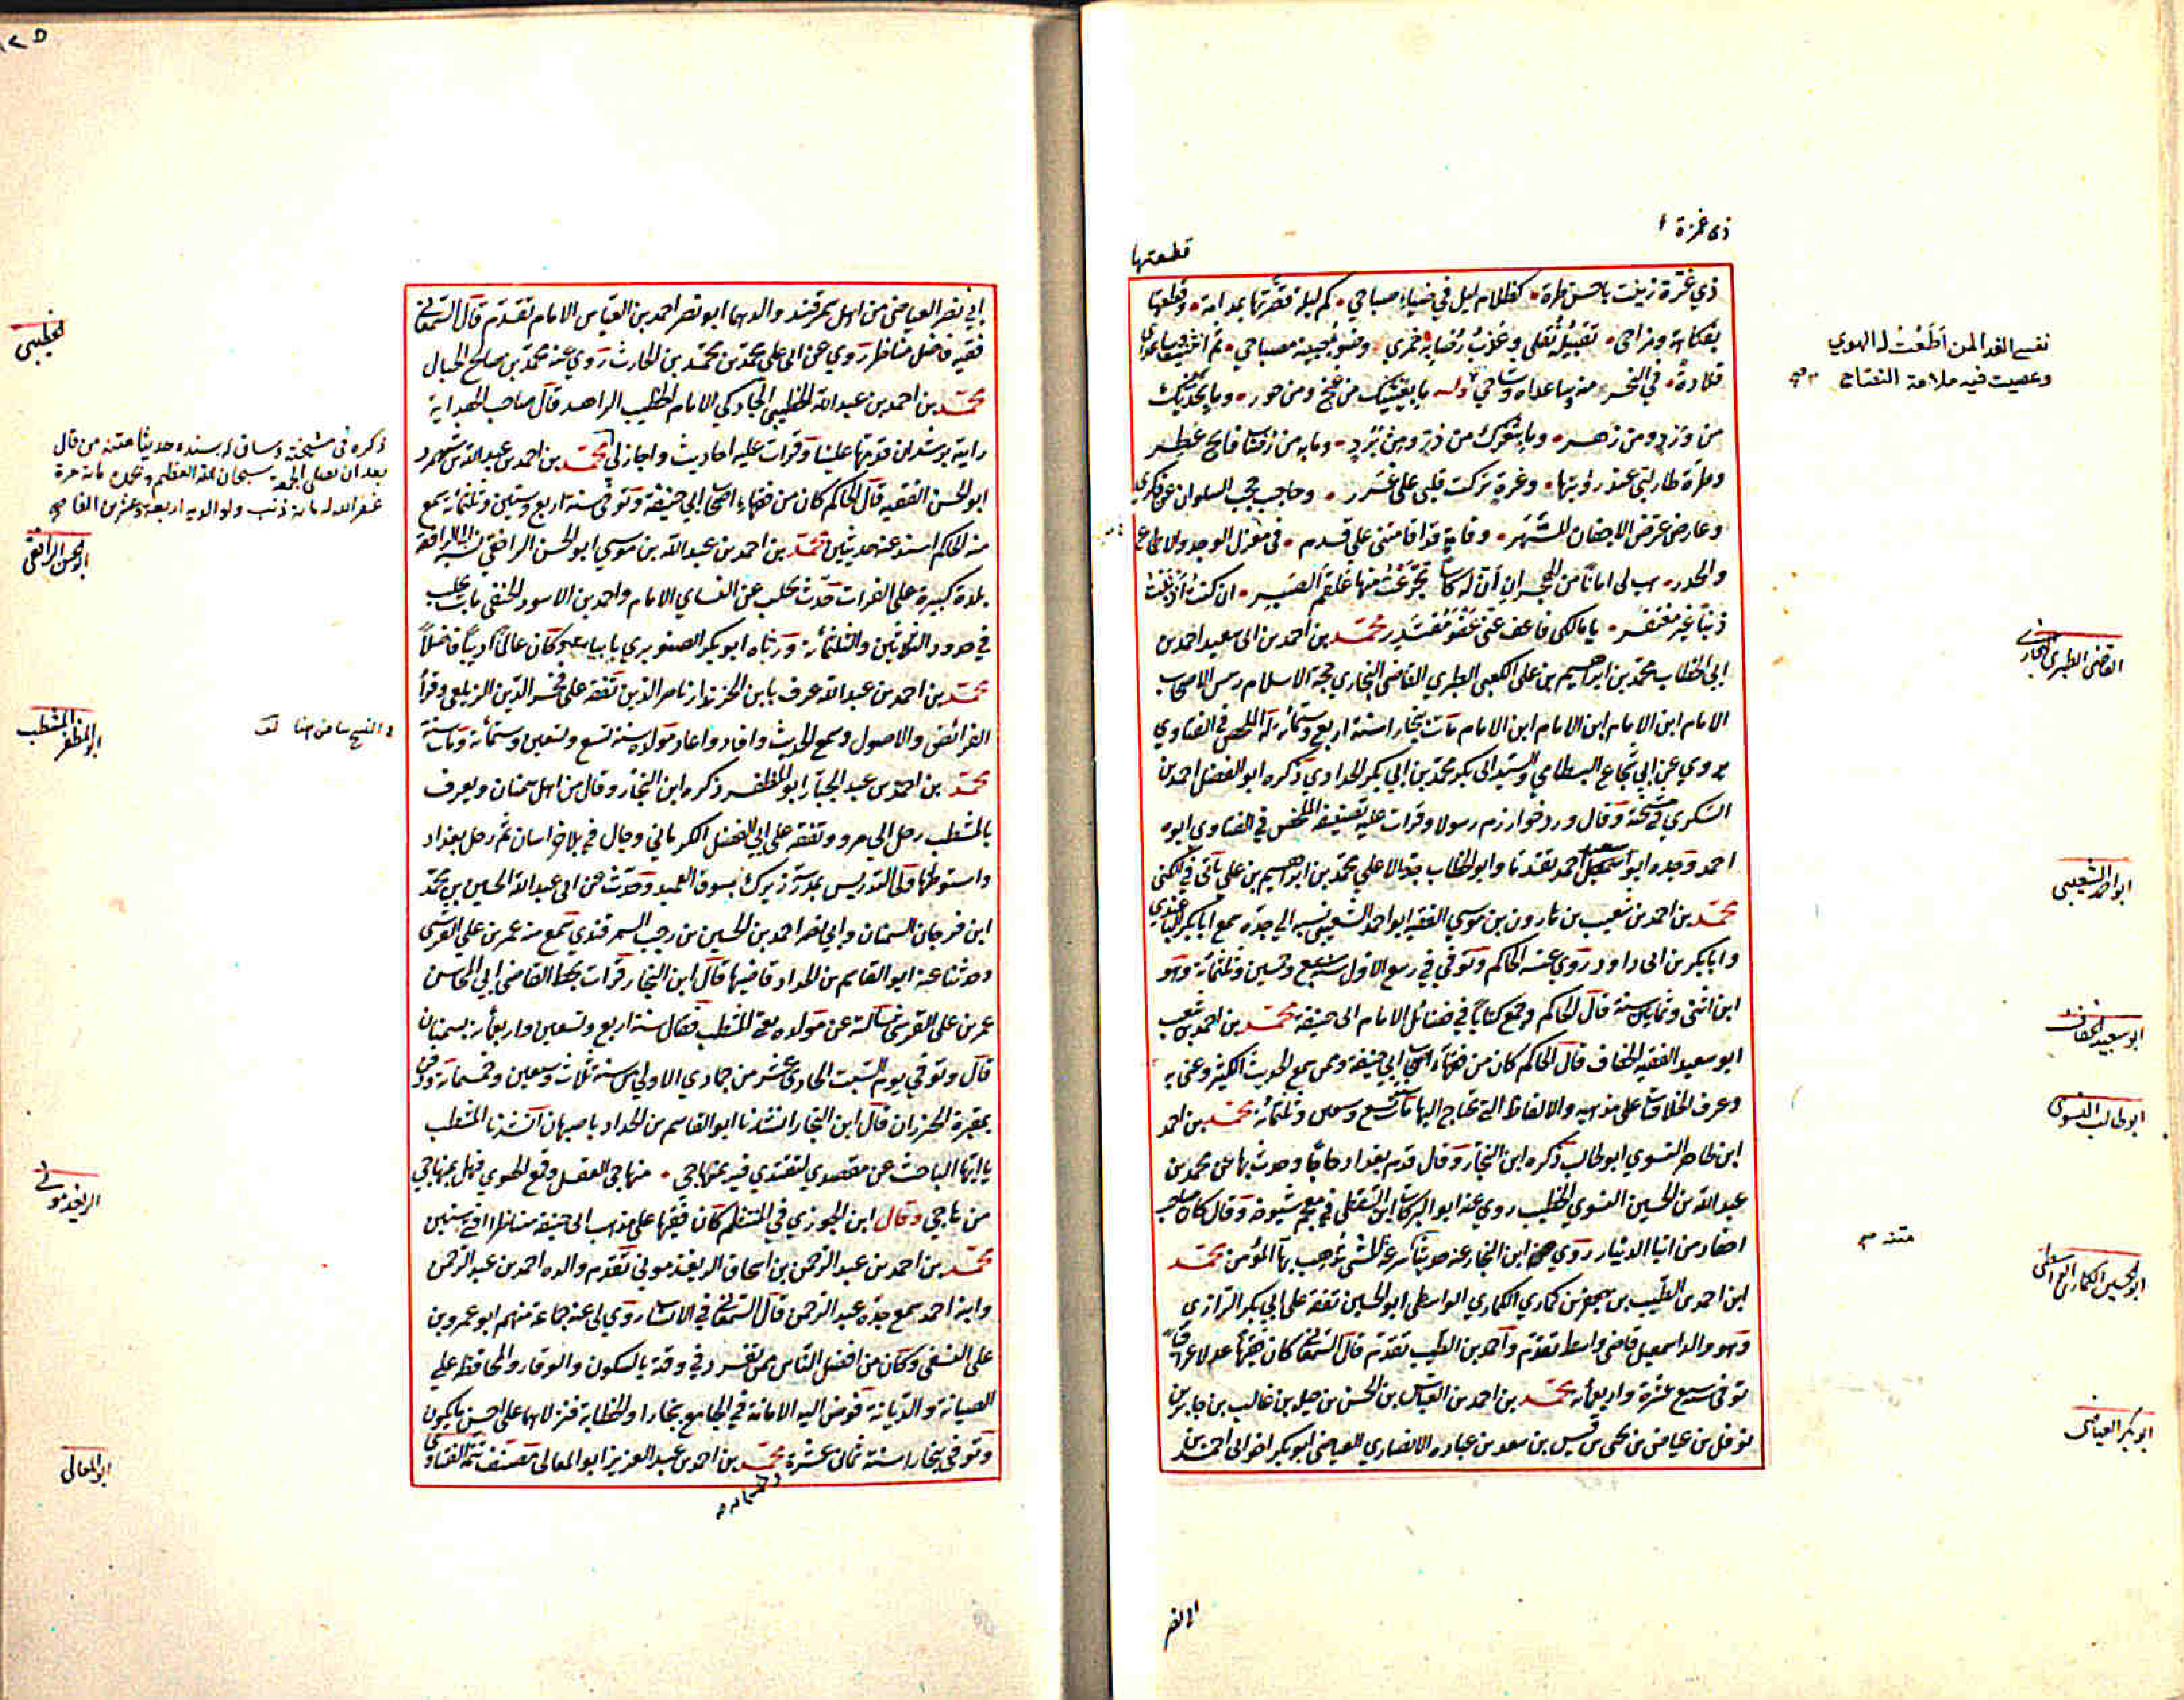 ذي غرة زينت باحسن طرة كظلام ليل في ضياء صباحي كم ليلة قصرتها بمدامة وقطعتها
بفكاهة ومزاحي تقبيله نقلي وعذب رضابه خمري وضوء جبينه مصباحي ثم اعتنقنا
قلادة في النحر منه وساعداه وشاحي وله يا بعينيك من غنج ومن حور وبا بخديك
من ورد ومن زهر وبا بثغرك من در ومن برد وما به من رضاب فايح عطر
وطرة طار لبي عند رؤيتها وغرة تركت قلبي على غرر وحاجب حجب السلوان عن فكري
وعارض عرض الاجفان للسهر وقامة قد اقامتني على قدم في منزل الوجد
والحذر هب لي امانا من الهجران ان له كاسا تجرعت منها علقم الصبر ان كنت اذنبت
ذنبا غير مغتفر يا مالكي فاعف عني عفو مقتدر محمد بن احمد بن ابي سعيد احمد بن
ابي الخطاب محمد بن ابراهيم بن علي الكعبي الطبري القاضي البخاري حجة الاسلام
الامام ابن الامام ابن الامام ابن الامام مات ببخارا سنة اربع وستمائة له الملخص في الفتاوي
يروي عن ابي شجاع البسطامي والسيد ابي بكر محمد بن ابي بكر الحدادي ذكره ابو الفضل احمد بن
السكري في مشيخته وقال ورد خوارزم رسولا وقرات عليه تصنيفه الملخص في الفتاوي ابوه
احمد وجده ابو سعيد احمد تقدما وابو الخطاب جده الاعلى محمد بن ابراهيم بن علي ياتي في الكنى
محمد بن احمد بن شعيب بن هارون بن موسي الفقيه ابو احمد الشعيبي نسبه الي جده سمع
وابا بكر بن ابي داود روي عنه الحاكم وتوفي في ربيع الاول سنة سبع وخمسين وثلثمائة وهو
ابن اثنتي وثمانين سنة قال الحاكم وجمع كتابا في فضائل الامام ابي حنيفة محمد بن احمد بن شعيب
ابو سعيد الفقيه الخفاف قال الحاكم كان من فقهاء اصحاب ابي حنيفة وممن سمع الحديث الكثير وعني به
وعرف الخلافات على مذهبه والالفاظ التي تحتاج اليها مات سنة تسع وسبعين وثلثمائة محمد بن احمد
ابن طاهر النسوي ابو طالب ذكره ابن النجار وقال قدم بغداد حاجا وحدث بها عن محمد بن
عبد الله بن الحسين النسوي الخطيب روي عنه ابو البركات ابن السقطي في معجم شيوخه وقال كان صاحب
روي ابن النجار عنه حديثا سرعة المشي تذهب بهاء المؤمن محمد
ابن احمد بن الطيب بن جعفر بن كماري الكماري الواسطي ابو الحسين تفقه علي ابي بكر الرازي
وهو والد اسمعيل قاضي واسط تقدم واحمد بن الطيب تقدم قال السمعاني كان فقيها عدلا
توفي سبع عشرة واربعمائة محمد بن احمد بن العباس بن الحسن بن جبلة بن غالب بن جابر بن
نوفل بن عياض بن يحيى بن قيس بن سعد بن عبادة الانصاري العياضي ابو بكر اخو ابي احمد بن
ذي غرة
قطعتها
نفسي الفدا لمن اطعت له الهوي
وعصيت فيه ملامة النصاح صح
القاضي الطبري البخاري
ابو احمد الشعيبي
ابو سعيد الخفاف
ابو طالب النسوي
متنه
ابو الحسين الكماري الواسطي
ابو بكر العياضي
ابي نصر
١٢٥
ابي نصر العياضي من اهل سمرقند والدهما ابو نصر احمد بن العباس الامام تقدم قال السمعاني
فقيه فاضل مناظر روي عن ابي علي محمد بن محمد بن الحارث روي عنه محمد بن صالح الجبال
محمد بن احمد بن عبد الله الخطيبي الجادكي الامام الخطيب الزاهد قال صاحب الهداية
رايته برشدان قدمها علينا وقرات عليه احاديث واجاز لي محمد بن احمد بن عبدوس
ابو الحسن الفقيه قال الحاكم كان من فقهاء اصحاب ابي حنيفة وتوفي سنة اربع وستين وثلثمائة سمع
منه الحاكم اسند عنه حديثين محمد بن احمد بن عبيد الله بن موسي ابو الحسن الرافقي نسبة الى الرافقة
بلدة كبيرة على الفرات حدث بحلب عن النساي الامام واحمد بن الاسود الحنفي مات بحلب
في حدود الثلاثين والثلثمائة ورثاه ابو بكر الصنوبري بابيات وكان عالما اديبا فاضلا
محمد بن احمد بن عبد الله عرف بابن الخزندار ناصر الدين تفقه على فخر الدين الزيلعي وقرأ
الفرائض والاصول وسمع الحديث وافاد واعاد مولده سنة تسع وتسعين وستمائة ومات سنة
محمد بن احمد بن عبد الجبار ابو المظفر ذكره ابن النجار وقال من اهل سمنان ويعرف
بالمشطب رحل الي مرو وتفقه على ابي الفضل الكرماني وجال في بلاد خراسان ثم دخل بغداد
واستوطنها وولي التدريس بمدرسة زيرك بسوق العميد وحدث عن ابي عبد الله الحسين بن محمد
ابن فرخان السمنان وابي نصر احمد بن الحسين بن رجب السمرقندي سمع منه عمر بن علي القرشي
وحدثنا عنه ابو القاسم بن الحداد قاضيها قال ابن النجار قرات بخط القاضي ابي المحاسن
عمر بن علي القرشي سالته عن مولده يعني المشطب فقال سنة اربع وتسعين واربعمائة بسمنان
قال وتوفي يوم السبت الحادي عشر من جمادي الاولي من سنة ثلاث وسبعين وخمسمائة ودفن
بمقبرة الخيزران قال ابن النجار انشدنا ابو القاسم بن الحداد باصبهان انشدنا المشطب
يا ايها الباحث عن مقصدي لتقتدي فيه بمنهاجي منهاجي العقل وقمع الهوي فهل بمنهاجي
من ناجي وقال ابن الجوزي في المنتظم كان فقيها على مذهب ابي حنيفة مناظرا
محمد بن احمد بن عبد الرحمن بن اسحاق الريغدموني تقدم والده احمد بن عبد الرحمن
وابنه احمد سمع جده عبد الرحمن قال السمعاني في الانساب روي لي عنه جماعة منهم ابو عمرو بن
علي النسفي وكان من افضل الناس ممن تفرد في وقته بالسكون والوقار والمحافظة علي
الصيانة والديانة فوض اليه الامانة في الجامع ببخارا والخطابة فنزلا بها على احسن ما يكون
وتوفي ببخارا سنة ثماني عشرة محمد بن احمد بن عبد العزيز ابو المعالي مصنف تتمة الفتاوي
وخمسمائة
الخطيبي
ذكره في مشيخته وساق له بسنده حديثا متنه من قال
بعد ان يصلي الجمعة سبحان الله العظيم وبحمده مائة مرة
غفر الله له مائة ذنب ولوالديه اربعة وعشرين الفا صح
ابو الحسن الرافقي
ابو المظفر المشطب
الريغدموني
ابو المعالي